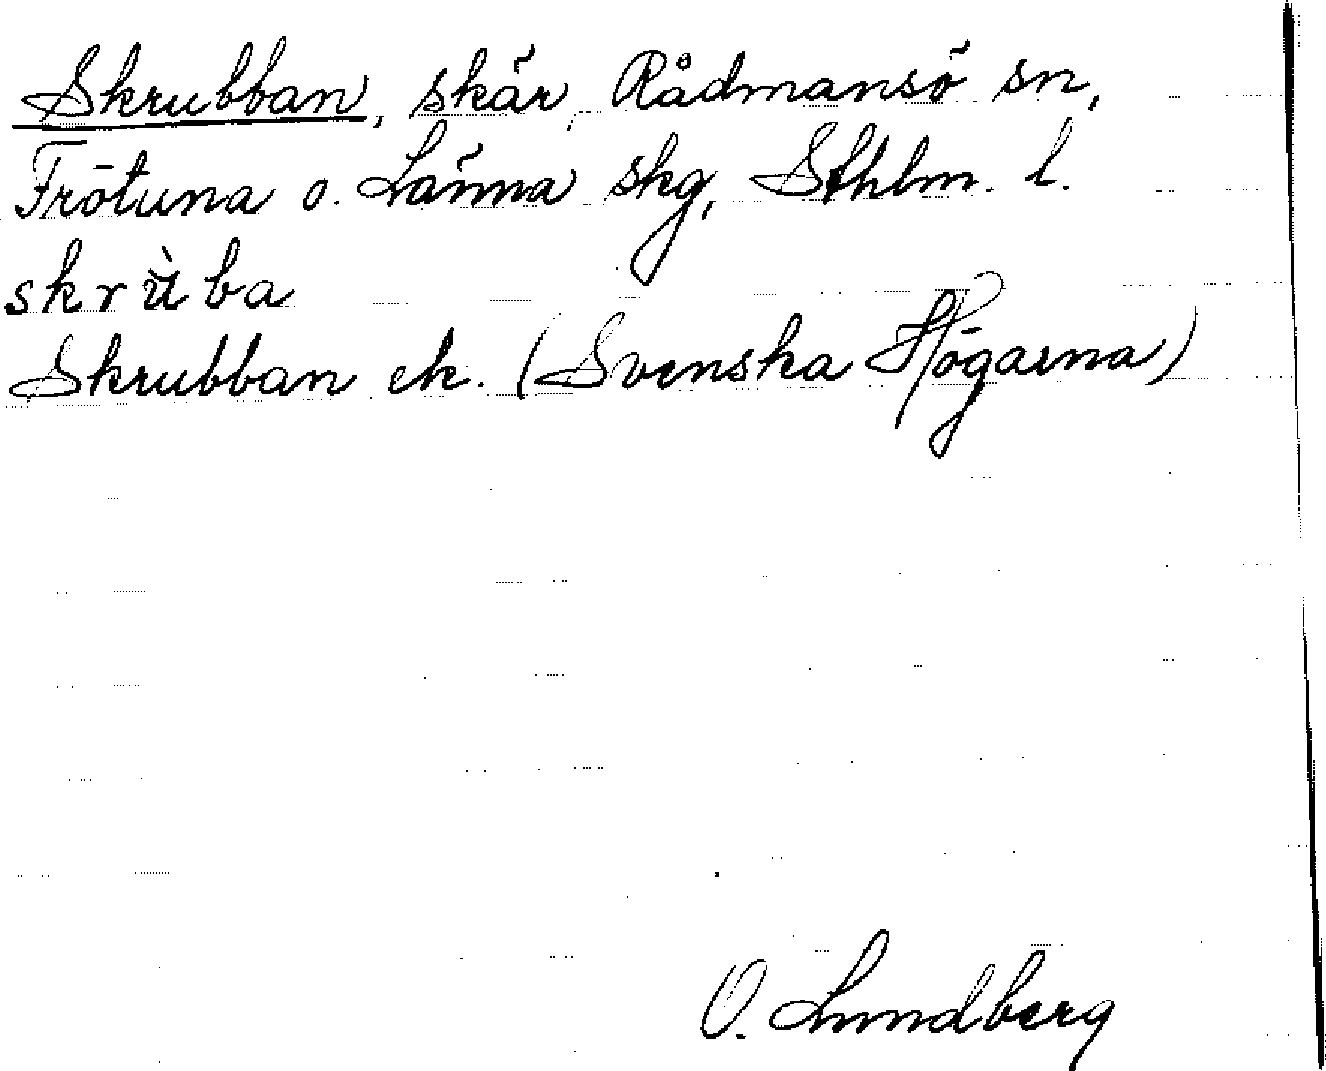 Skrubban, skär, Rådmansö sn,
Frötuna o. Länna skg, Sthlm. l.
skrùba
Skrubban ek. (Svenska Högarna)
O. Lundberg